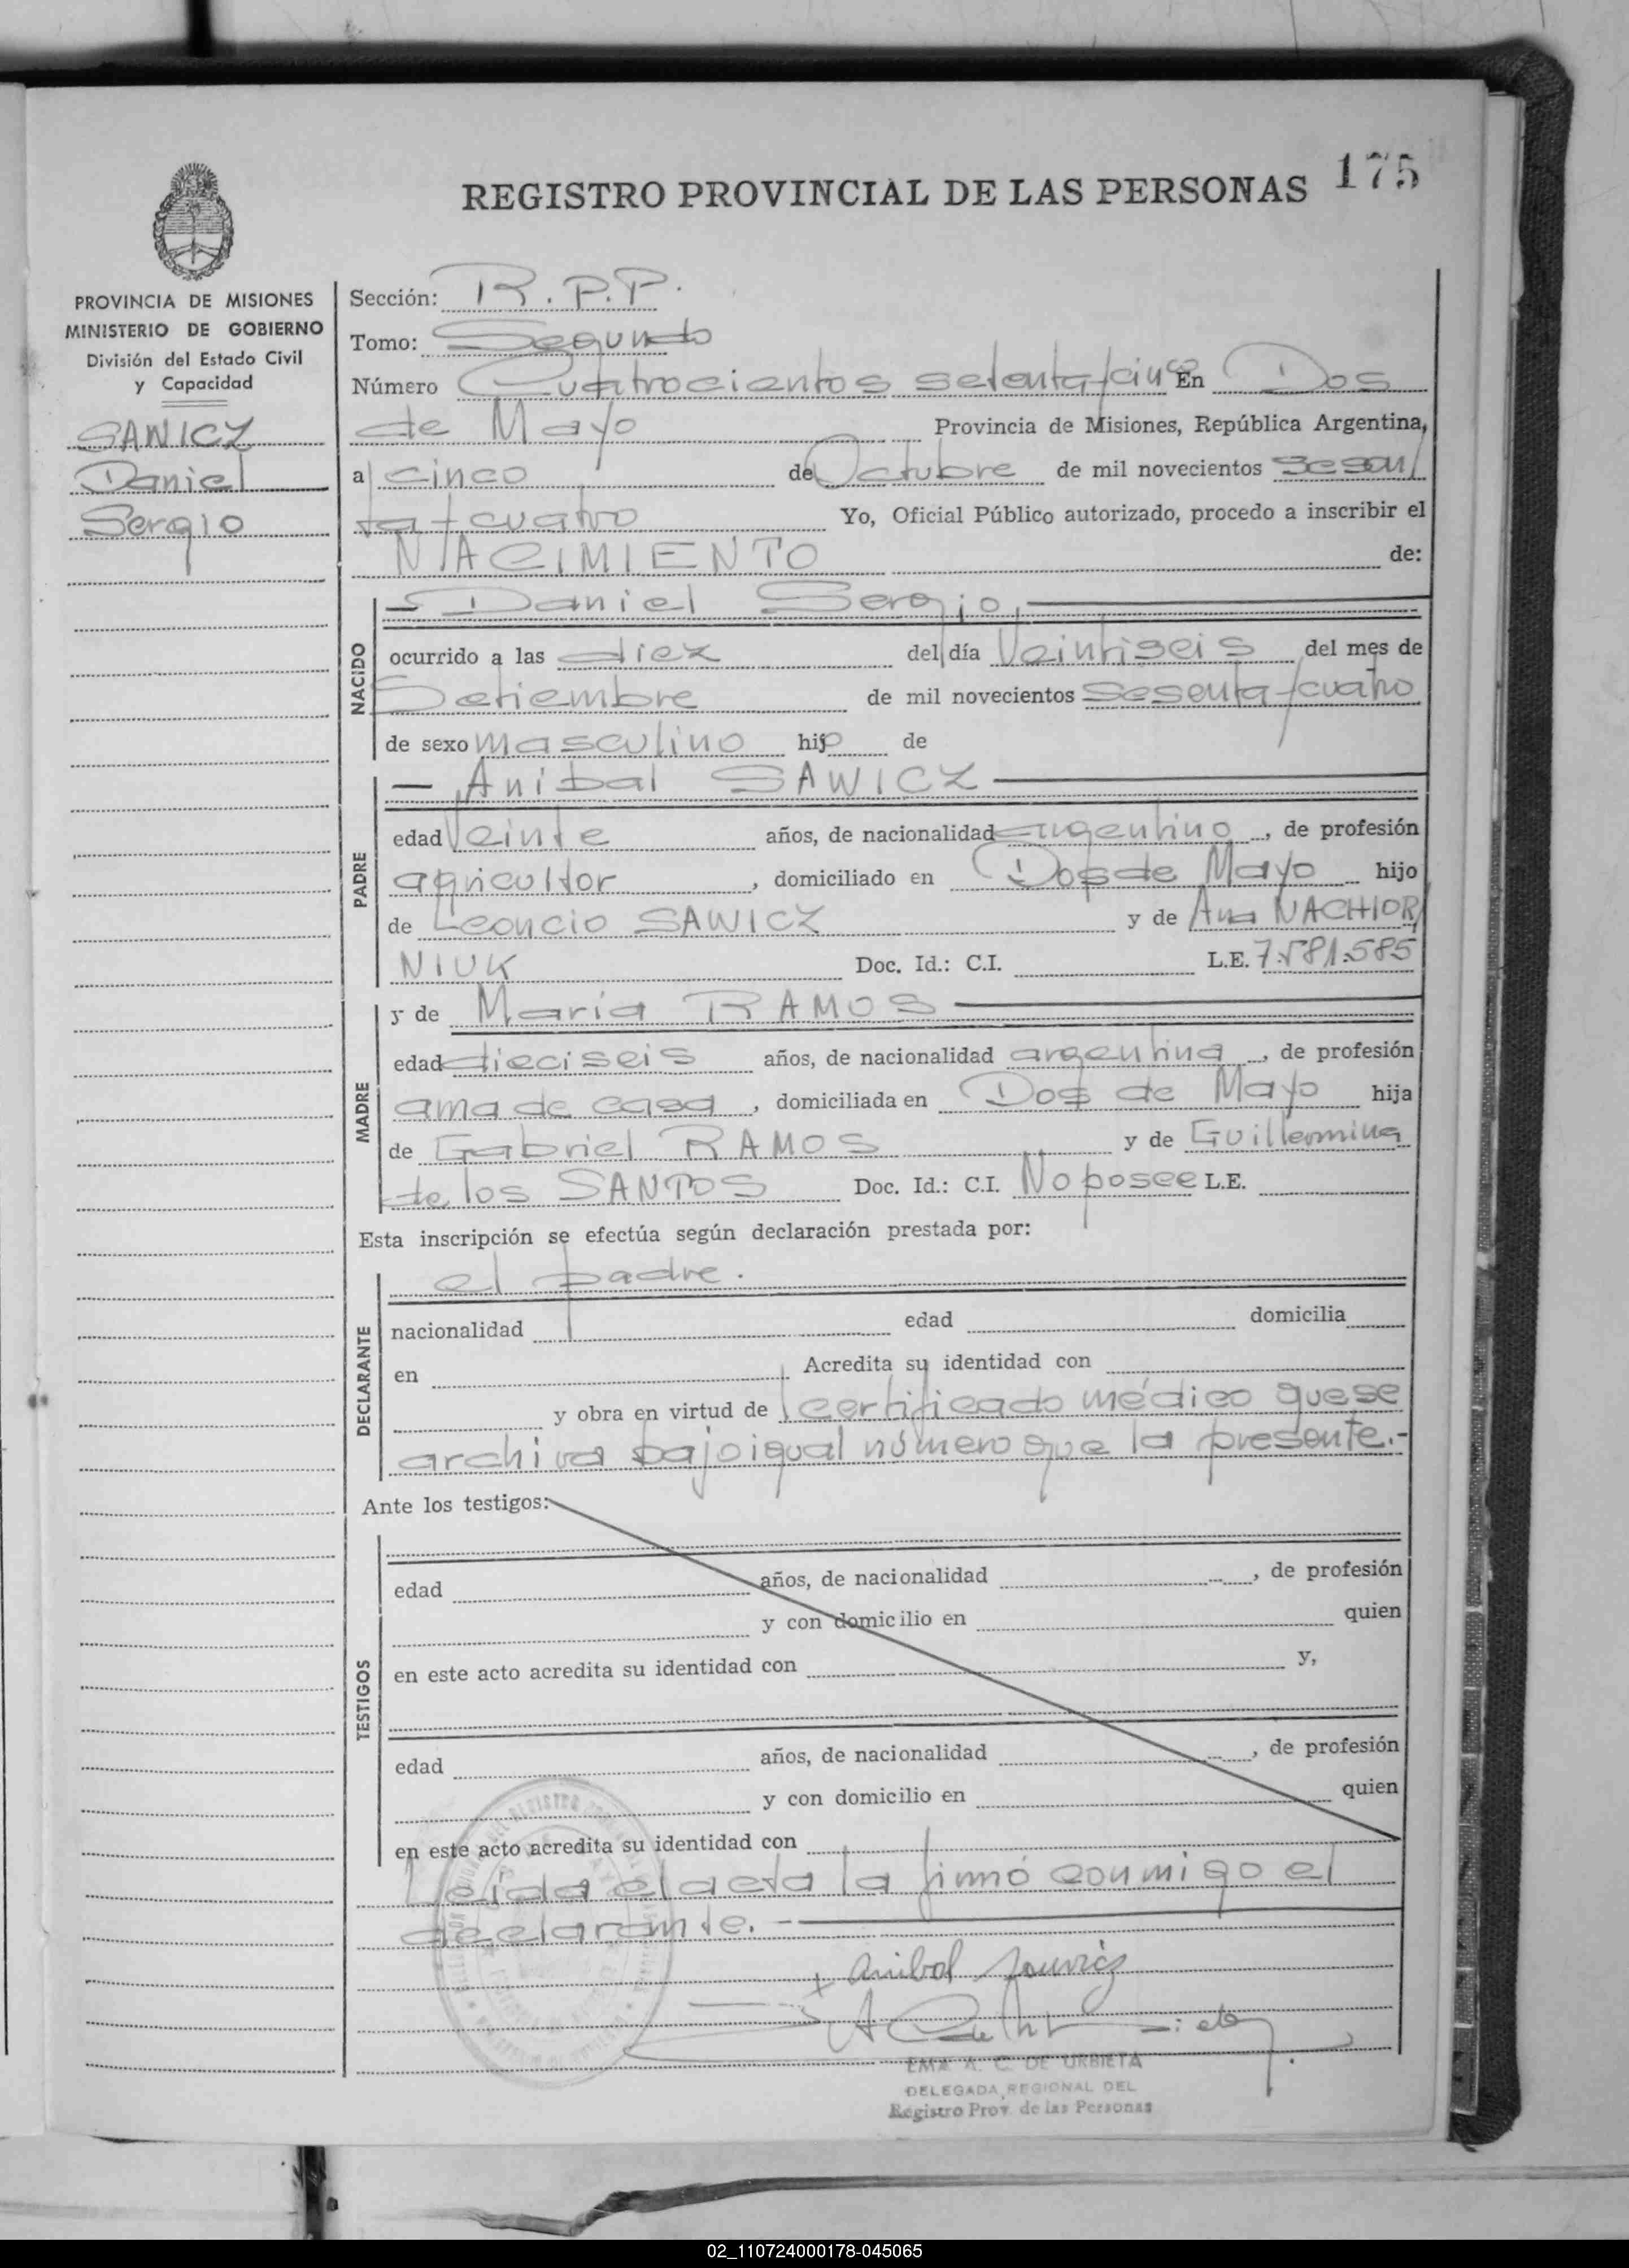 175
REGISTRO PROVINCIAL DE LAS PERSONAS
PROVINCIA DE MISIONES
MINISTERIO DE GOBIERNO
División del Estado Civil
y Capacidad
SAWICZ
Daniel
Sergio
Sección: R.P.P.
Tomo: Segundo
Número Cuatrocientos setenta/cinco En Dos
de Mayo Provincia de Misiones, República Argentina,
a cinco de Octubre de mil novecientos sesen/
ta/cuatro Yo, Oficial Público autorizado, procedo a inscribir el
NACIMIENTO de:
NACIDO
— Daniel Sergio,
ocurrido a las diez del día Veintiseis del mes de
Setiembre de mil novecientos sesenta/cuatro
de sexo masculino hijo de
PADRE
— Anibal SAWICZ
edad Veinte años, de nacionalidad argentino, de profesión
agricultor, domiciliado en Dos de Mayo hijo
de Leoncio SAWICZ y de Ana NACHIOR/
NIUK Doc. Id.: C.I. L.E. 7.581.585
MADRE
y de María RAMOS
edad dieciseis años, de nacionalidad argentina, de profesión
ama de casa, domiciliada en Dos de Mayo hija
de Gabriel RAMOS y de Guillermina
de los SANTOS Doc. Id.: C.I. No posee L.E.
Esta inscripción se efectúa según declaración prestada por:
DECLARANTE
el padre.
nacionalidad edad domicilia
en Acredita su identidad con
y obra en virtud de certificado médico que se
archiva bajo igual número que la presente.-
Ante los testigos:
TESTIGOS
edad años, de nacionalidad , de profesión
y con domicilio en quien
en este acto acredita su identidad con y,
edad años, de nacionalidad , de profesión
y con domicilio en quien
en este acto acredita su identidad con
Leída el acta la firmó conmigo el
declarante.
Anibal Sawicz
EMA A. C. DE URBIETA
DELEGADA REGIONAL DEL
Registro Prov. de las Personas
02_110724000178-045065